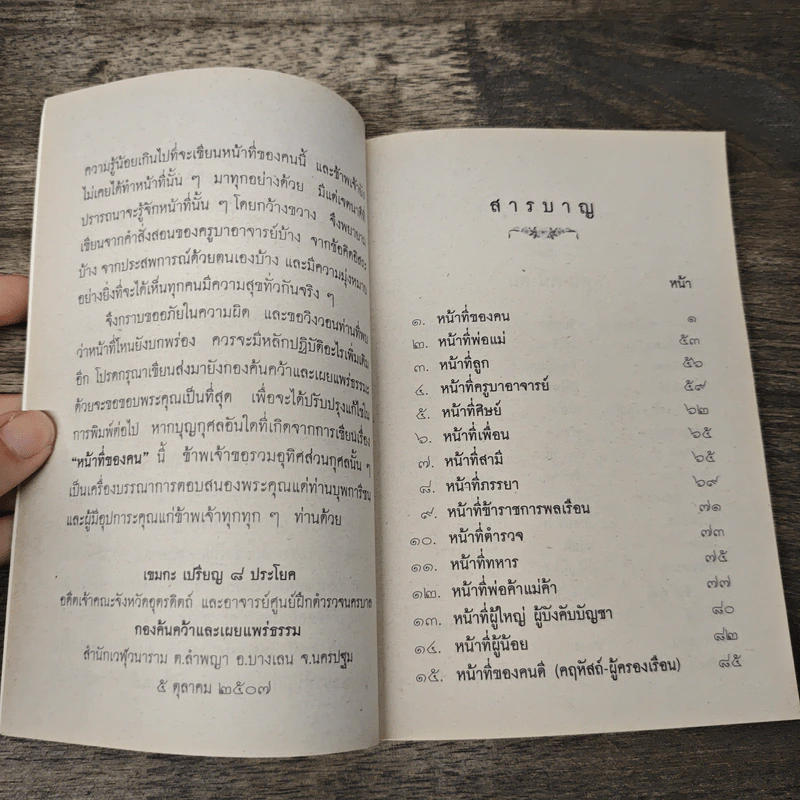 ความรู้น้อยเกินไปที่จะเขียนหน้าที่ของคนนี้ และข้าพเจ้าก็ยัง
ไม่เคยได้ทำหน้าที่นั้น ๆ มาทุกอย่างด้วย มีแต่เจตนาดีที่
ปรารถนาจะรู้จักหน้าที่นั้น ๆ โดยกว้างขวาง จึงพยายาม
เขียนจากคำสั่งสอนของครูบาอาจารย์บ้าง จากข้อคิดอิสระ
บ้าง จากประสพการณ์ด้วยตนเองบ้าง และมีความมุ่งหมาย
อย่างยิ่งที่จะได้เห็นทุกคนมีความสุขทั่วกันจริง ๆ
จึงกราบขออภัยในความผิด และขอวิงวอนท่านที่พบ
ว่าหน้าที่ไหนยังบกพร่อง ควรจะมีหลักปฏิบัติอะไรเพิ่มเติม
อีก โปรดกรุณาเขียนส่งมายังกองค้นคว้าและเผยแพร่ธรรมะ
ด้วยจะขอขอบพระคุณเป็นที่สุด เพื่อจะได้ปรับปรุงแก้ไขใน
การพิมพ์ต่อไป หากบุญกุศลอันใดที่เกิดจากการเขียนเรื่อง
“หน้าที่ของคน” นี้ ข้าพเจ้าขอรวมอุทิศส่วนกุศลนั้น ๆ
เป็นเครื่องบรรณาการตอบสนองพระคุณแด่ท่านบุพการีชน
และผู้มีอุปการะคุณแก่ข้าพเจ้าทุกทุก ๆ ท่านด้วย
เขมกะ เปรียญ ๘ ประโยค
อดีตเจ้าคณะจังหวัดอุตรดิตถ์ และอาจารย์ศูนย์ฝึกตำรวจนครบาล
กองค้นคว้าและเผยแพร่ธรรม
สำนักเวฬุวนาราม ต.ลำพญา อ.บางเลน จ.นครปฐม
๕ ตุลาคม ๒๕๐๗
สารบาญ
หน้า
๑. หน้าที่ของคน ๑
๒. หน้าที่พ่อแม่ ๕๓
๓. หน้าที่ลูก ๕๖
๔. หน้าที่ครูบาอาจารย์ ๕๙
๕. หน้าที่ศิษย์ ๖๒
๖. หน้าที่เพื่อน ๖๕
๗. หน้าที่สามี ๖๕
๘. หน้าที่ภรรยา ๖๙
๙. หน้าที่ข้าราชการพลเรือน ๗๑
๑๐. หน้าที่ตำรวจ ๗๓
๑๑. หน้าที่ทหาร ๗๕
๑๒. หน้าที่พ่อค้าแม่ค้า ๗๗
๑๓. หน้าที่ผู้ใหญ่ ผู้บังคับบัญชา ๘๐
๑๔. หน้าที่ผู้น้อย ๘๒
๑๕. หน้าที่ของคนดี (คฤหัสถ์-ผู้ครองเรือน) ๘๕